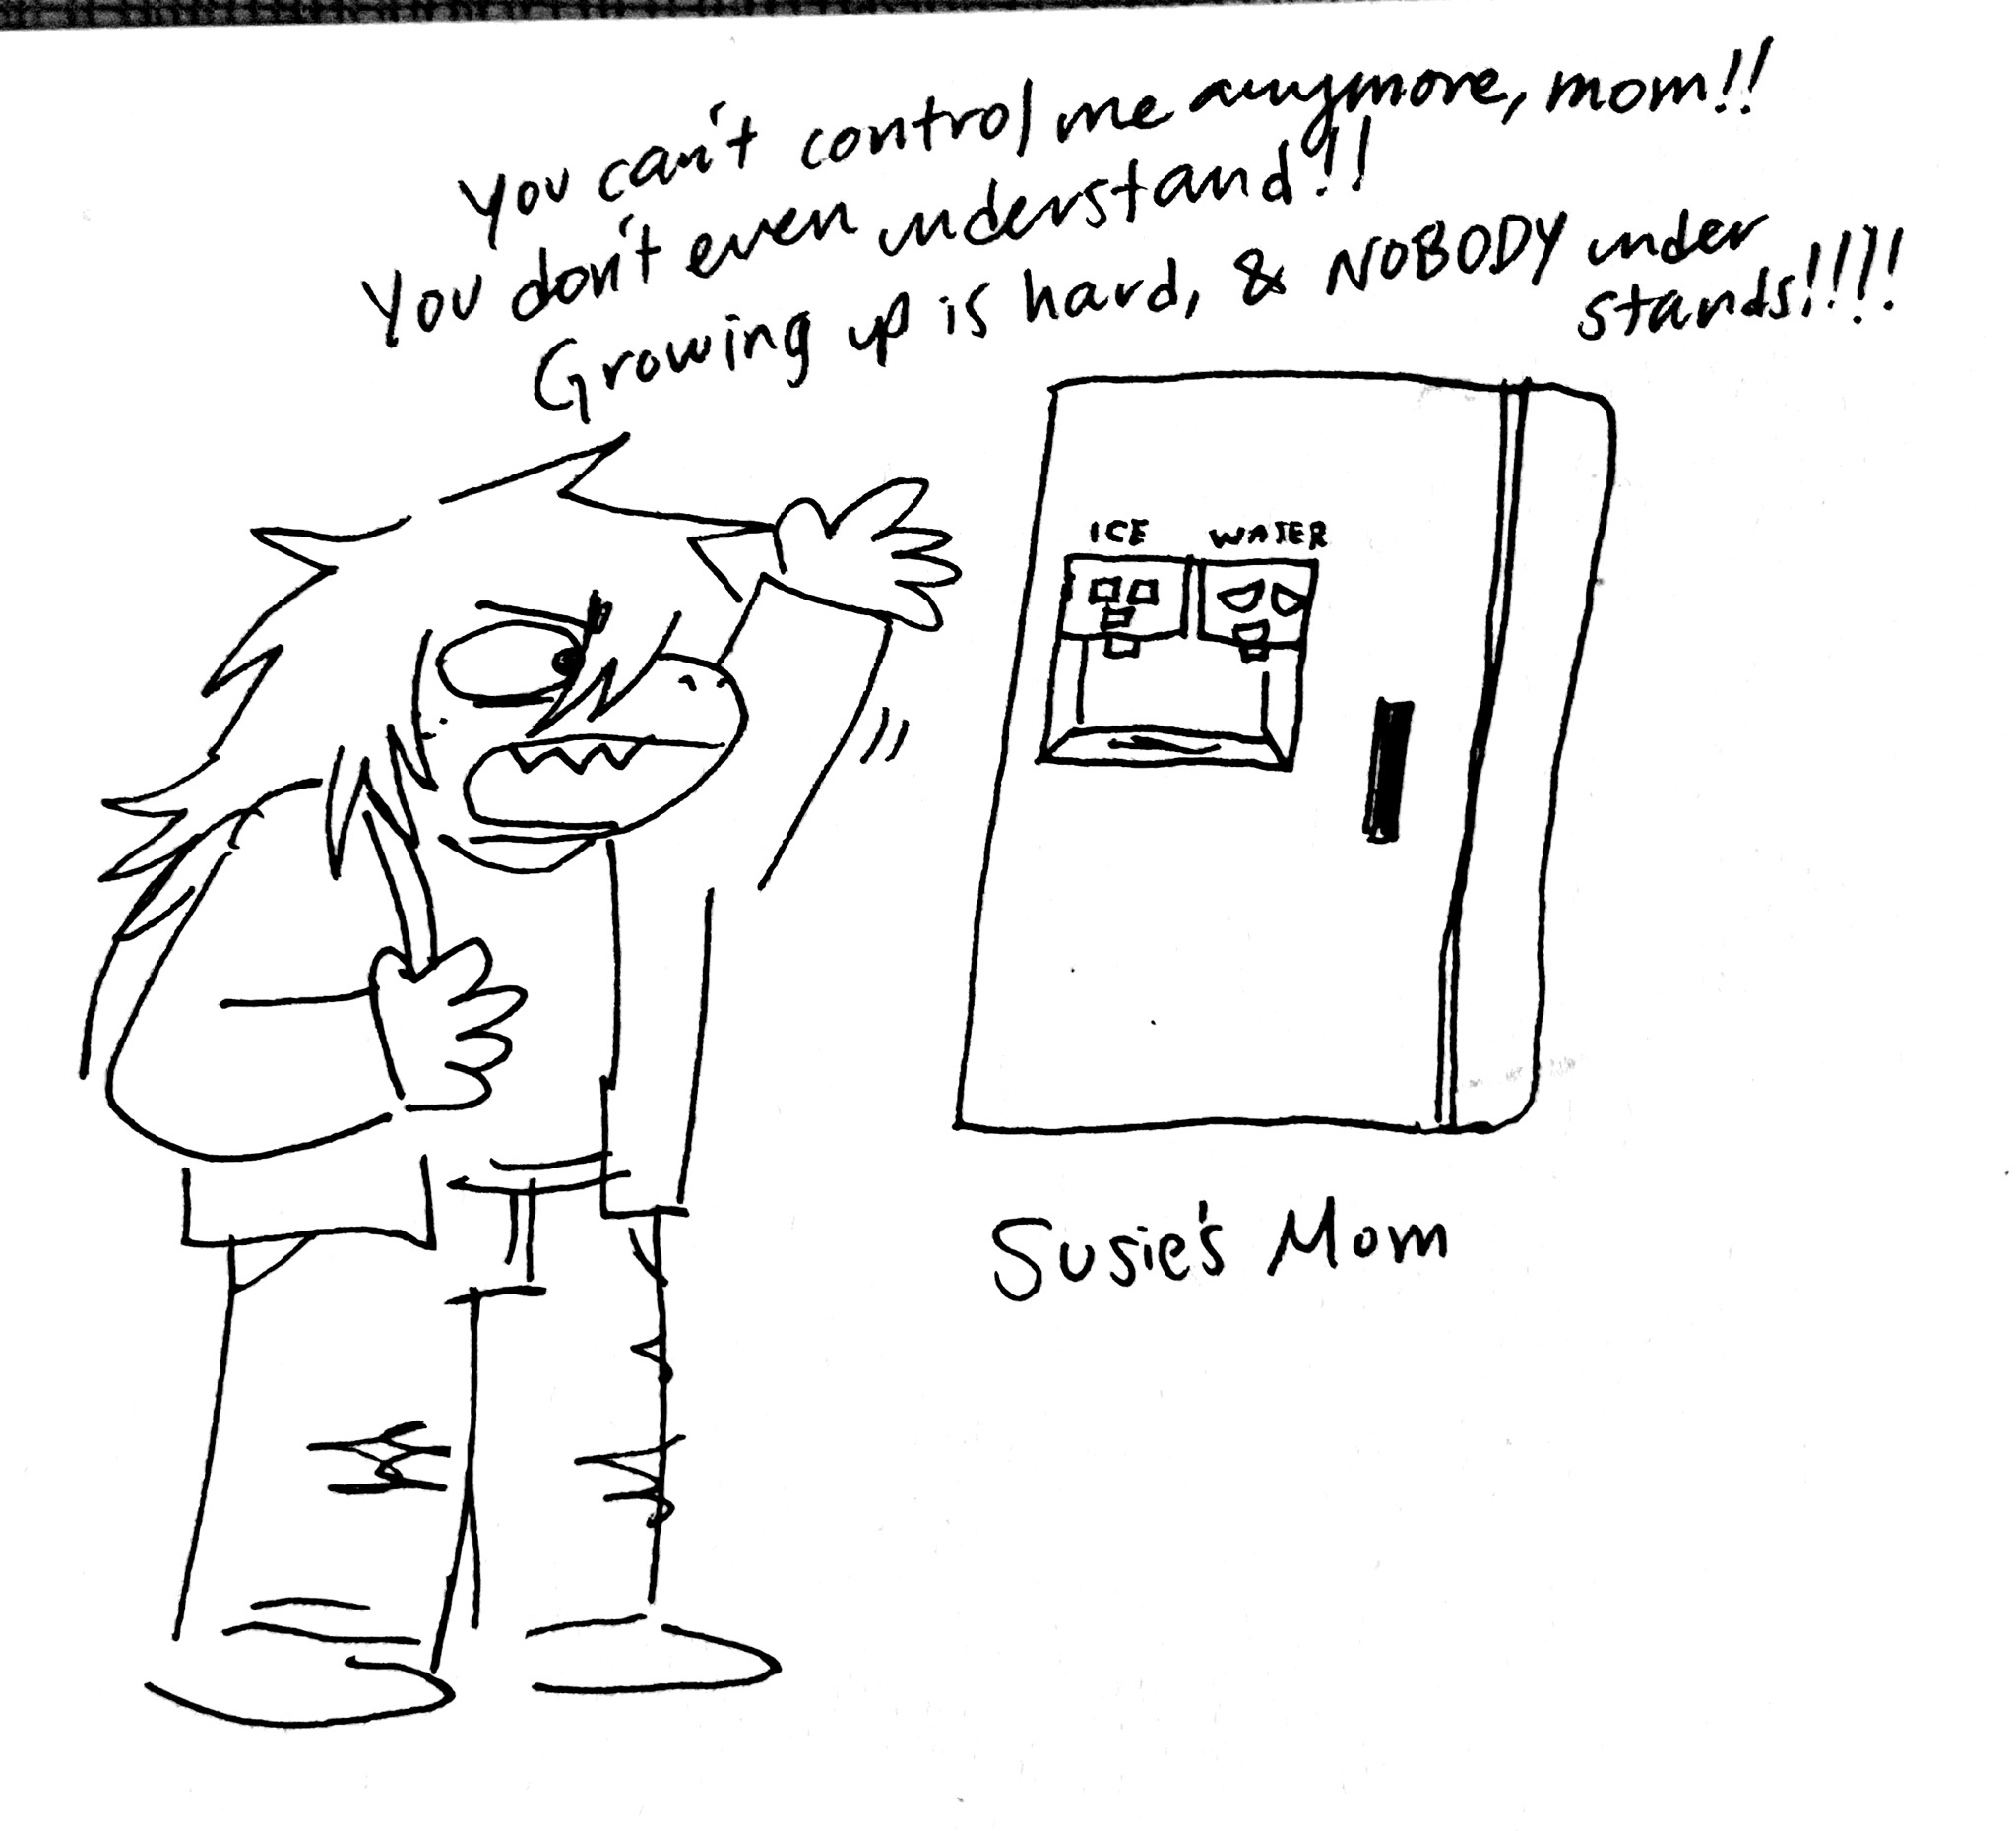 You can't control me anymore, mom!!
You don't even understand!!
Growing up is hard, & NOBODY under
stands!!!!
ICE WATER
Susie's Mom